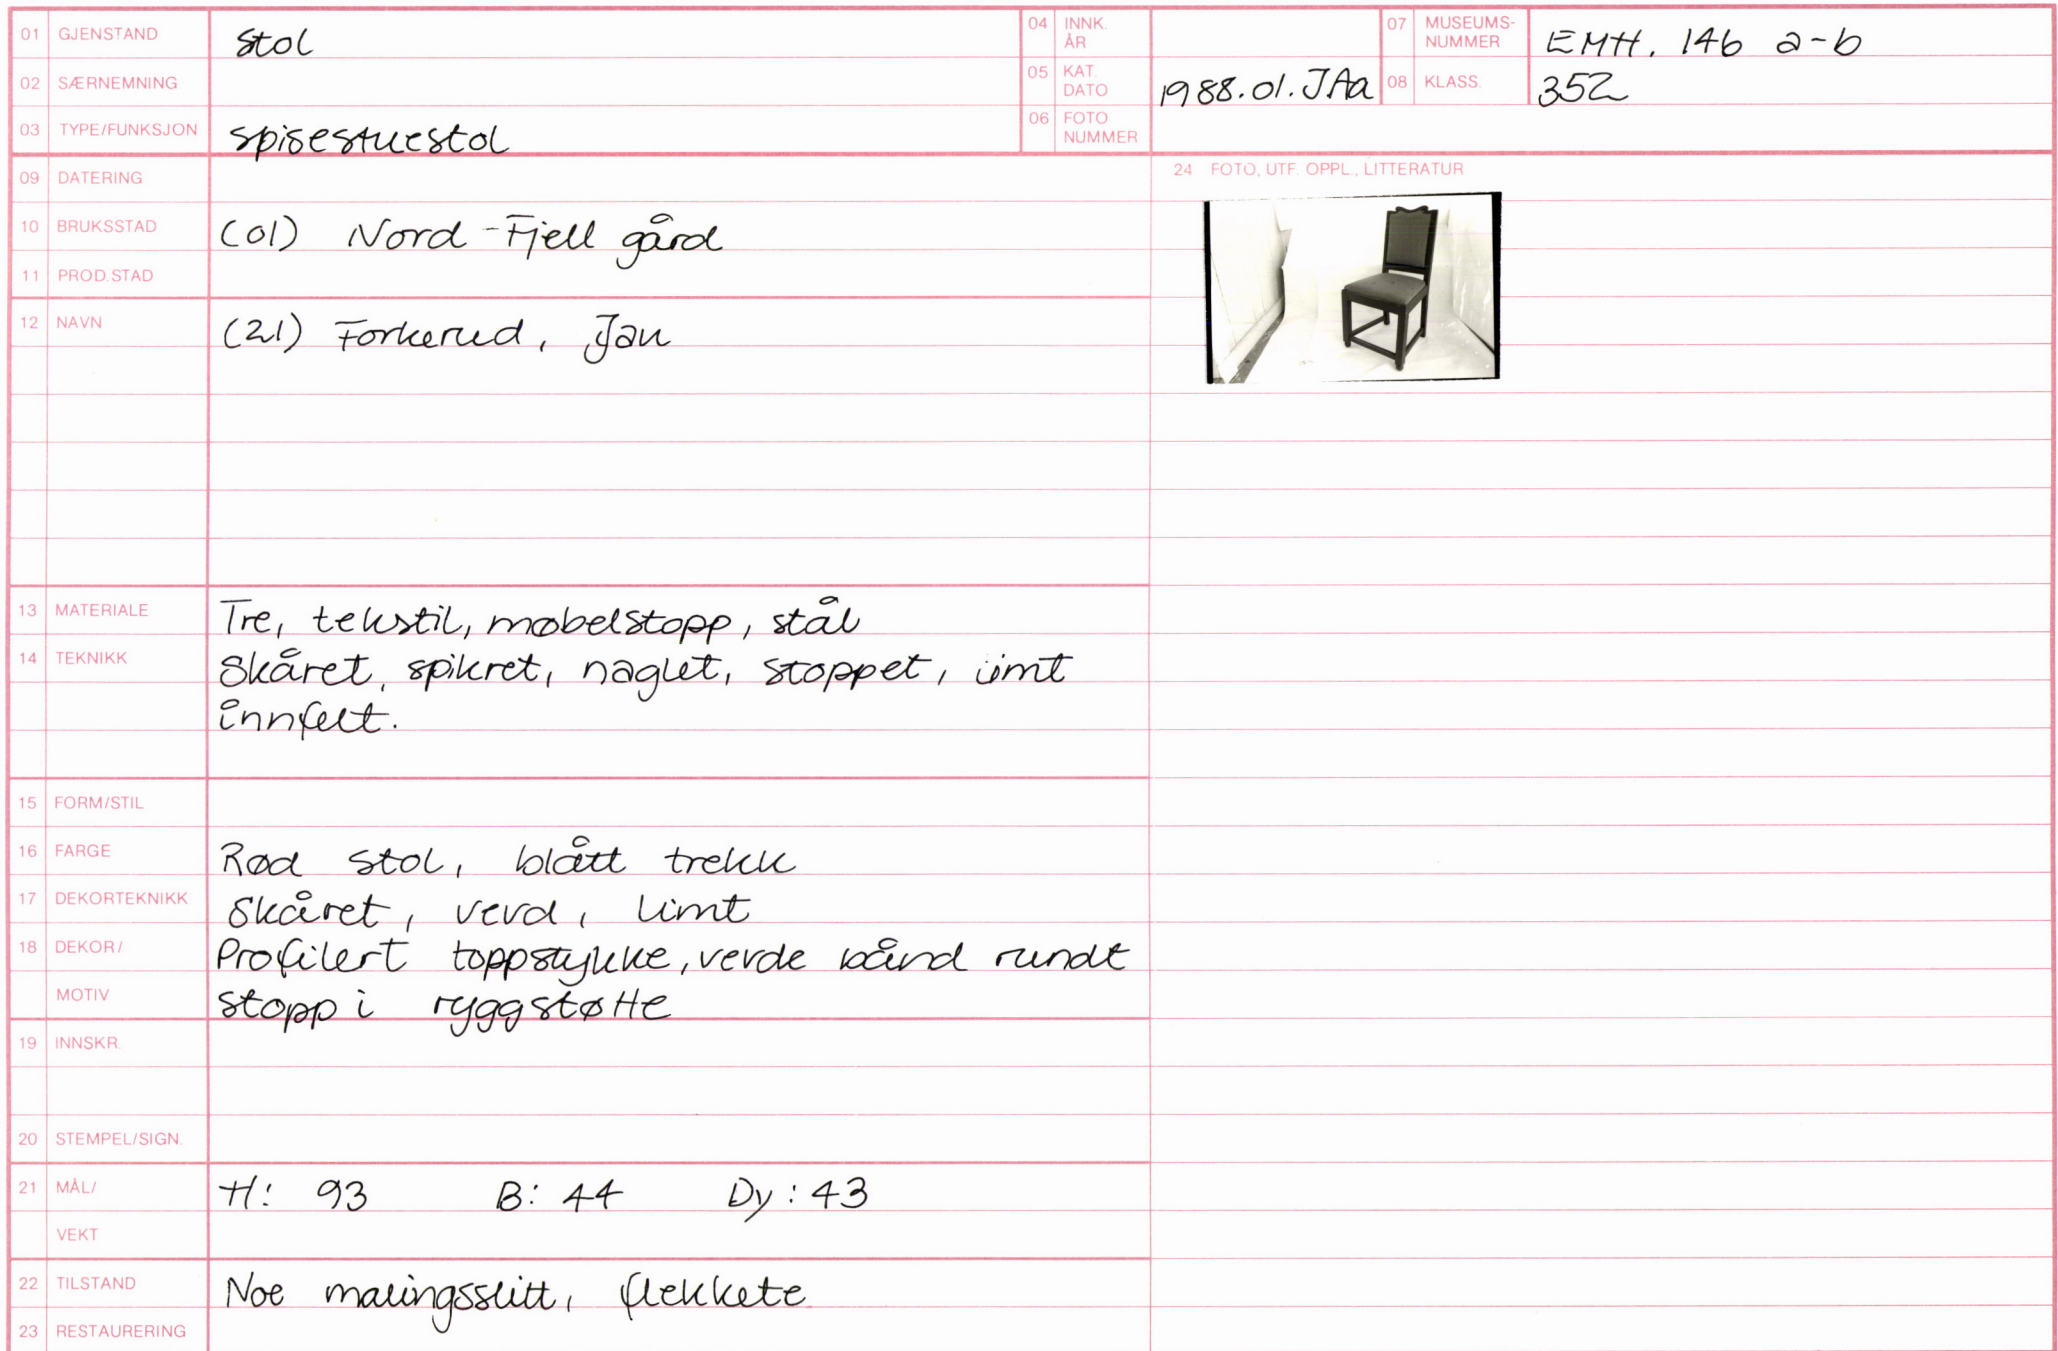 01 GJENSTAND stol
02 SÆRNEMNING
03 TYPE/FUNKSJON spisestuestol
04 INNK. ÅR
05 KAT. DATO 1988.01.JAa
06 FOTO NUMMER
07 MUSEUMS-NUMMER EMH. 146 a-b
08 KLASS. 352
09 DATERING
10 BRUKSSTAD (01) Nord-Fjell gård
11 PROD.STAD
12 NAVN (21) Forkerud, Jan
13 MATERIALE Tre, tekstil, møbelstopp, stål
14 TEKNIKK Skåret, spikret, naglet, stoppet, limt
innfelt.
15 FORM/STIL
16 FARGE Rød stol, blått trekk
17 DEKORTEKNIKK Skåret, vevd, limt
18 DEKOR/ Profilert toppstykke, vevde bånd rundt
MOTIV stopp i ryggstøtte
19 INNSKR.
20 STEMPEL/SIGN.
21 MÅL/ H: 93 B: 44 Dy: 43
VEKT
22 TILSTAND Noe malingsslitt, flekkete
23 RESTAURERING
24 FOTO, UTF. OPPL., LITTERATUR